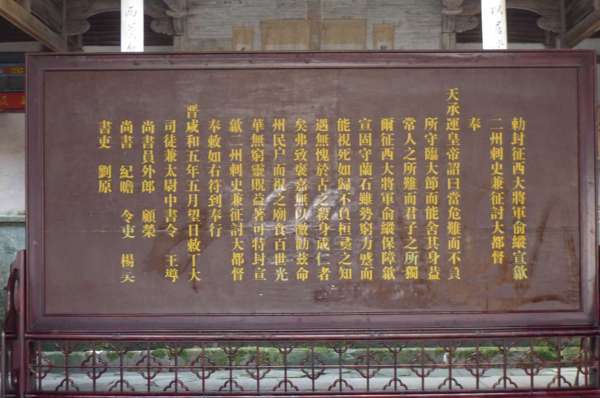 勅封征西大將軍俞縱宣歙
二州刺史兼征討大都督
奉
天承運皇帝詔曰當危難而不負
所守臨大節而能舍其身益
常人之所難而君子之所獨
爾征西大將軍俞縱保障歙
宣固守蘭石雖勢窮力盛而
能視死如歸不負桓彝之知
遇無愧於古之殺身成仁者
矣弗致褒嘉無以激勵茲命
州民戶而祖之廟食百世光
華無窮靈貺益著可特封宣
歙二州刺史兼征討大都督
奉敕如右符到奉行
晉咸和五年五月望日敕丁大
司徒兼太尉中書令 王導
尚書員外郎 顧榮
尚書 紀瞻 令吏 楊
書吏 劉原